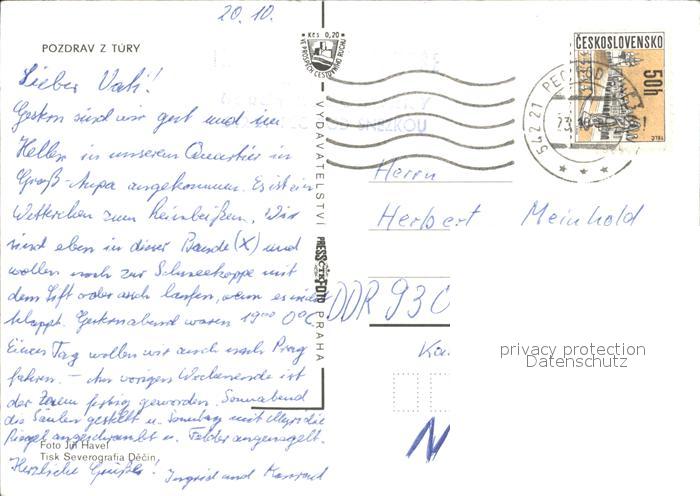 20.10.
POZDRAV Z TÚRY
Lieber Vati!
Gestern sind wir gut und im
Hellen in unserem Quartier in
Groß-Aupa angekommen. Es ist ein
Wetterchen zum Reinbeißen. Wir
sind eben in dieser Baude (X) und
wollen noch zur Schneekoppe mit
dem Lift oder auch laufen, wenn es nicht
klappt. Gestern abend waren 19⁰⁰ 0°C.
Einen Tag wollen wir auch nach Prag
fahren. – Am vorigen Wochenende ist
der Zaun fertig geworden. Sonnabend
die Säulen gestellt u. Sonntag mit die
Riegel angeschraubt u. Felder angenagelt.
Herzliche Grüße! Ingrid und Konrad
Foto Jiří Havel
Tisk Severografia Děčín
Kčs 0,20
VE PROSPĚCH CESTOVNÍHO RUCHU
VYDAVATELSTVÍ PRESSFOTO PRAHA
ČTK
SNĚŽKOU
542 21 PEC POD
ČESKOSLOVENSKO
50h
Herrn
Herbert Meinhold
DDR 930
privacy protection
Datenschutz
N